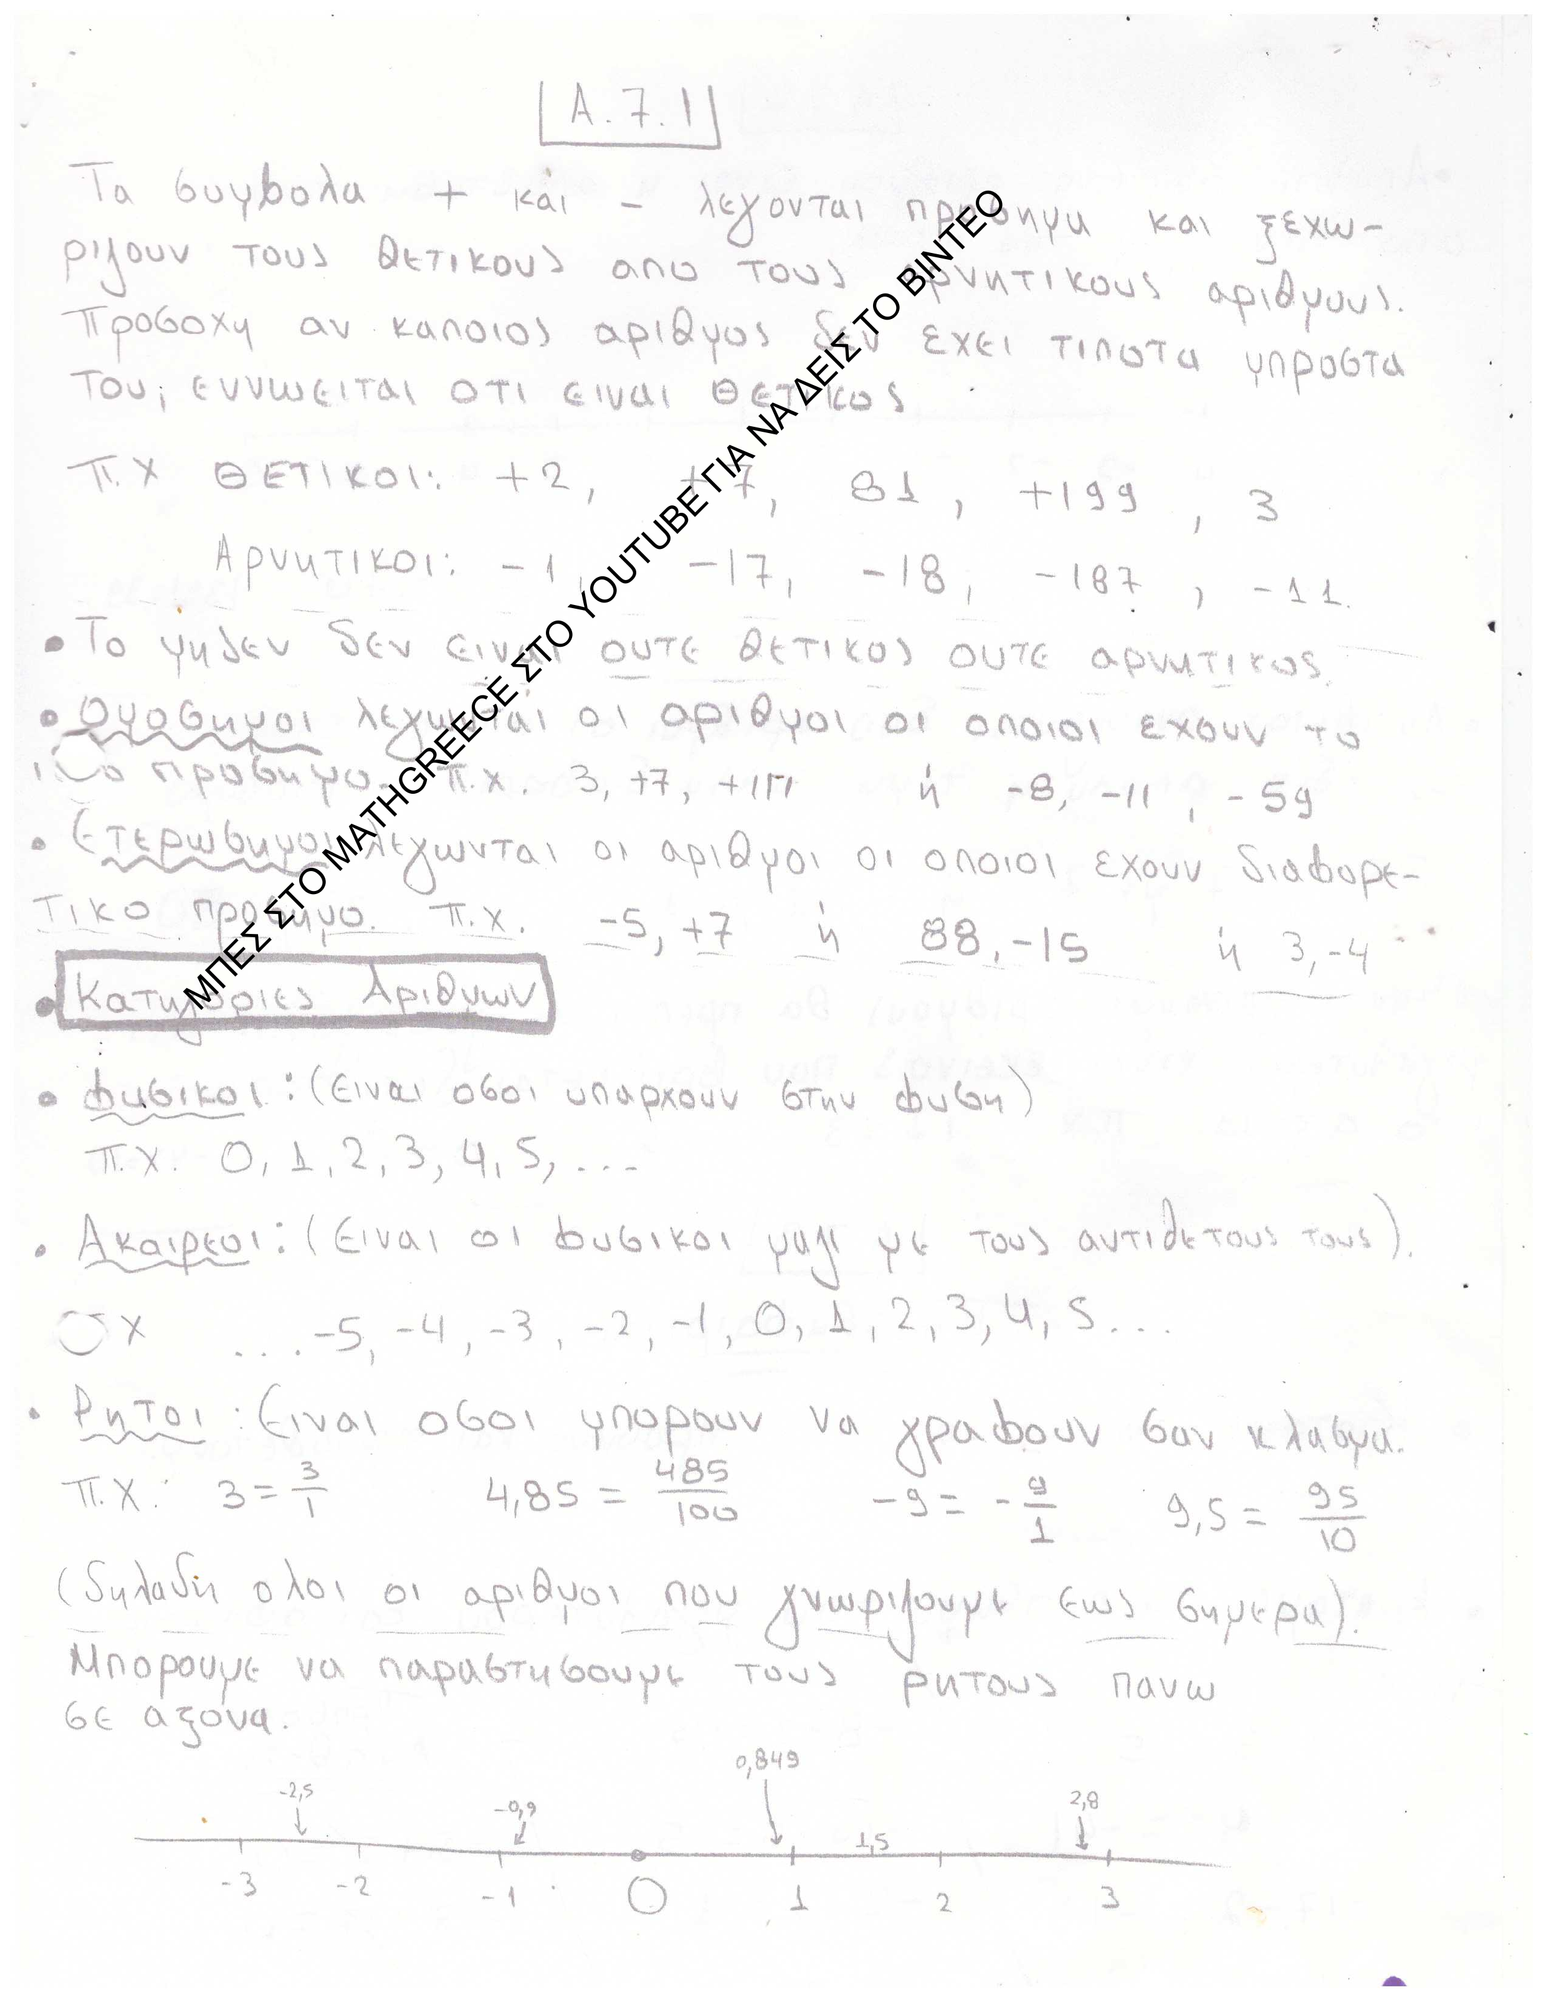 Α.7.1
Τα συμβολα + και - λεγονται προσημα και ξεχω-
ριζουν τους θετικους απο τους αρνητικους αριθμους.
Προσοχη αν καποιος αριθμος δεν εχει τιποτα μπροστα
του, εννωειται οτι ειναι θετικος
π.χ ΘΕΤΙΚΟΙ: +2, +7, 81, +199, 3
Αρνητικοι: -1, -17, -18, -187, -11.
• Το μηδεν δεν ειναι ουτε θετικος ουτε αρνητικος.
• Ομοσημοι λεγωνται οι αριθμοι οι οποιοι εχουν το
προσημο. π.χ. 3, +7, +111 ή -8, -11, -59
• Ετερωσημοι λεγωνται οι αριθμοι οι οποιοι εχουν διαφορε-
τικο προσημο. π.χ. -5, +7 ή 88, -15 ή 3, -4
• Κατηγοριες Αριθμων
• Φυσικοι: (Ειναι οσοι υπαρχουν στην φυση)
π.χ. 0, 1, 2, 3, 4, 5, ...
• Ακαιρεοι: (Ειναι οι φυσικοι μαζι με τους αντιθετους τους).
χ ...-5, -4, -3, -2, -1, 0, 1, 2, 3, 4, 5...
• Ρητοι: Ειναι οσοι μπορουν να γραφουν σαν κλασμα.
π.χ: 3=3/1 4,85 = 485/100 -9 = -9/1 9,5 = 95/10
(δηλαδή ολοι οι αριθμοι που γνωριζουμε εως σημερα).
Μπορουμε να παραστησουμε τους ρητους πανω
σε αξονα.
-2,5 -0,9 0,849 1,5 2,8
-3 -2 -1 0 1 2 3
ΜΠΕΣ ΣΤΟ MATHGREECE ΣΤΟ YOUTUBE ΓΙΑ ΝΑ ΔΕΙΣ ΤΟ ΒΙΝΤΕΟ